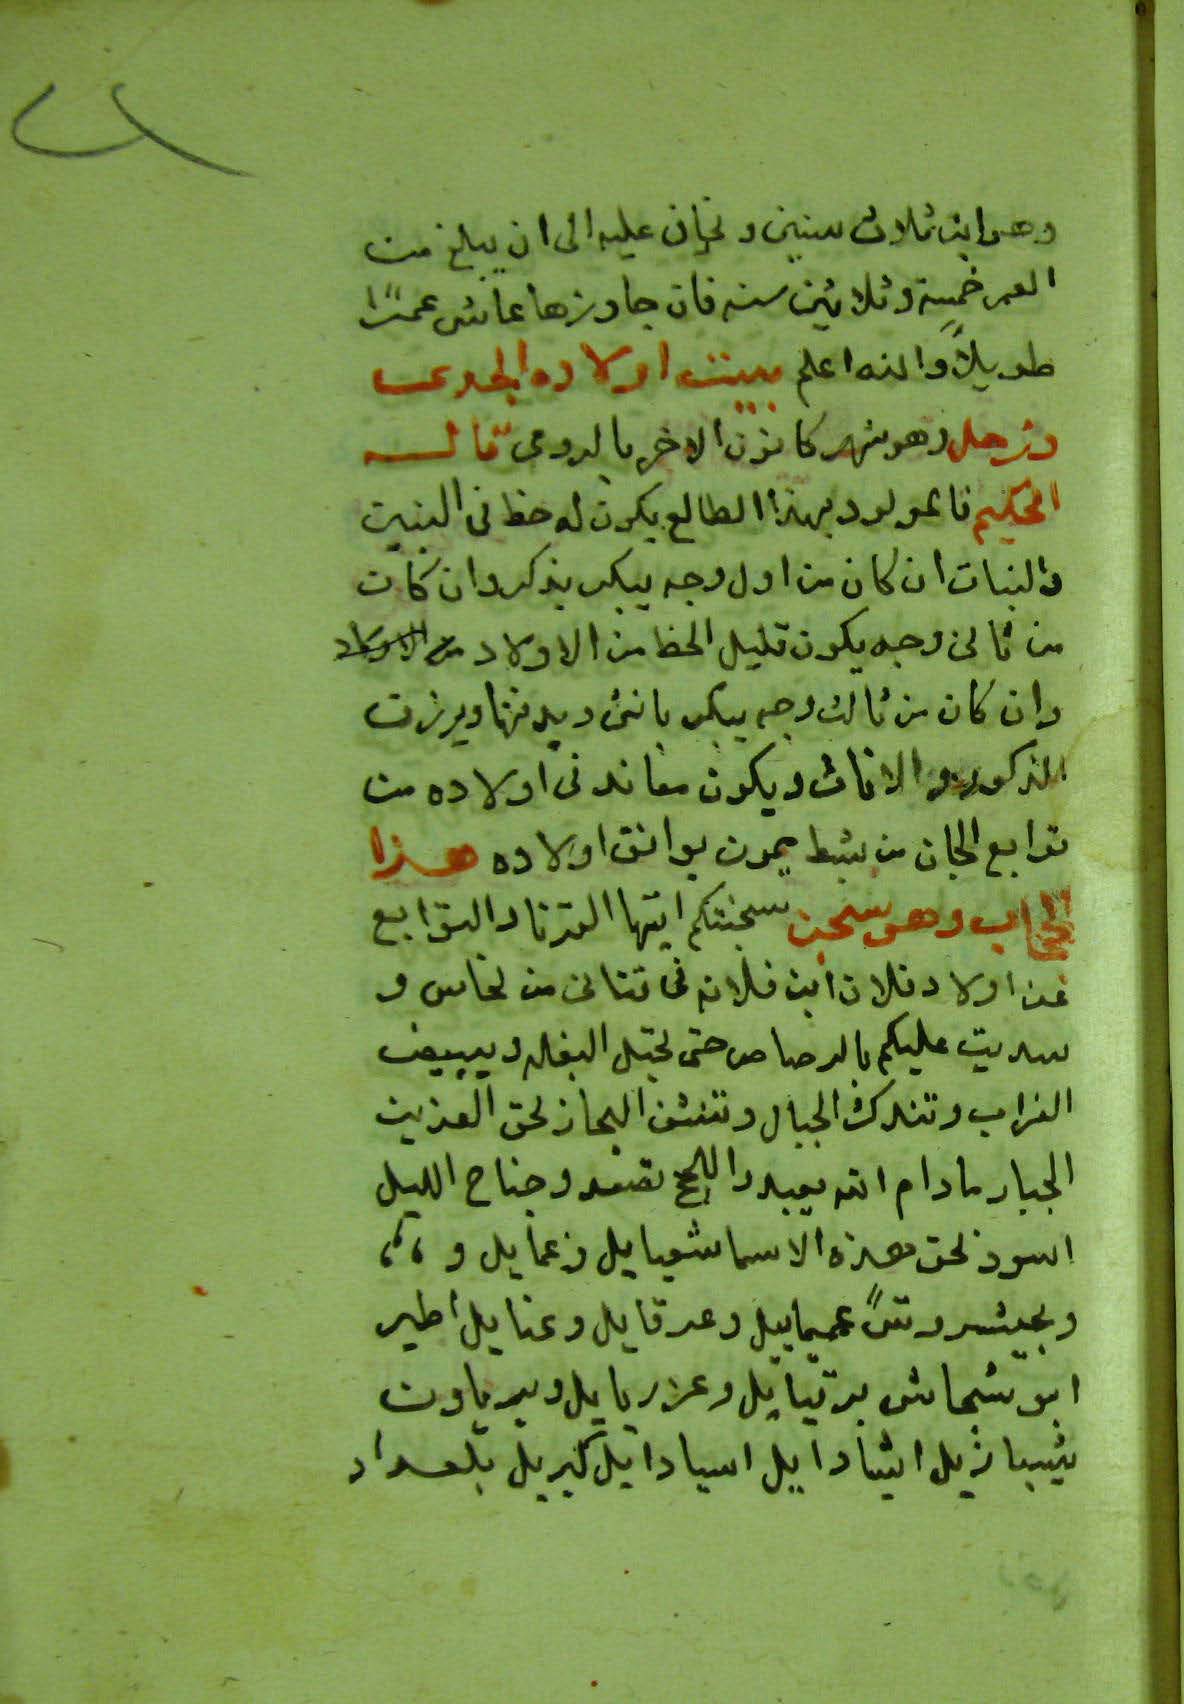 وهو ابن ثلاث سنين ويخاف عليه الى ان يبلغ من
العمر خمسة وثلاثين سنه فان جاوزها عاش عمرًا
طويلاً والله اعلم بيت اولاده الجدي
وزحل وهو شهر كانون الاخر بالرومي قال
الحكيم فالمولود بهذا الطالع يكون له حظ في البنين
والبنات ان كان من اول وجه يبكر بذكر وان كان
من ثاني وجه يكون قليل الحظ من الاولاد من الاولاد
وان كان من ثالث وجه يبكر بانثى ويدفنها ويرزق
الذكور والاناث ويكون معاند في اولاده من
توابع الجان من سبط يمون يوافق اولاده هذا
الحجاب وهو سجن سجنتكم ايتها القرنا والتوابع
عن اولاد فلان ابن فلانه في قناني من نحاس و
سديت عليكم بالرصاص حتى تحبل البغله ويبيض
الغراب وتندك الجبال وتنشف البحار بحق العزيز
الجبار مادام الله يعبد والملح يقعد وجناح الليل
اسود بحق هذه الاسما شعيايل زعمايل و
عميماييل وعرقايل وعنايل اطير
برتيايل وعزرريايل
اسيادايل كبريل